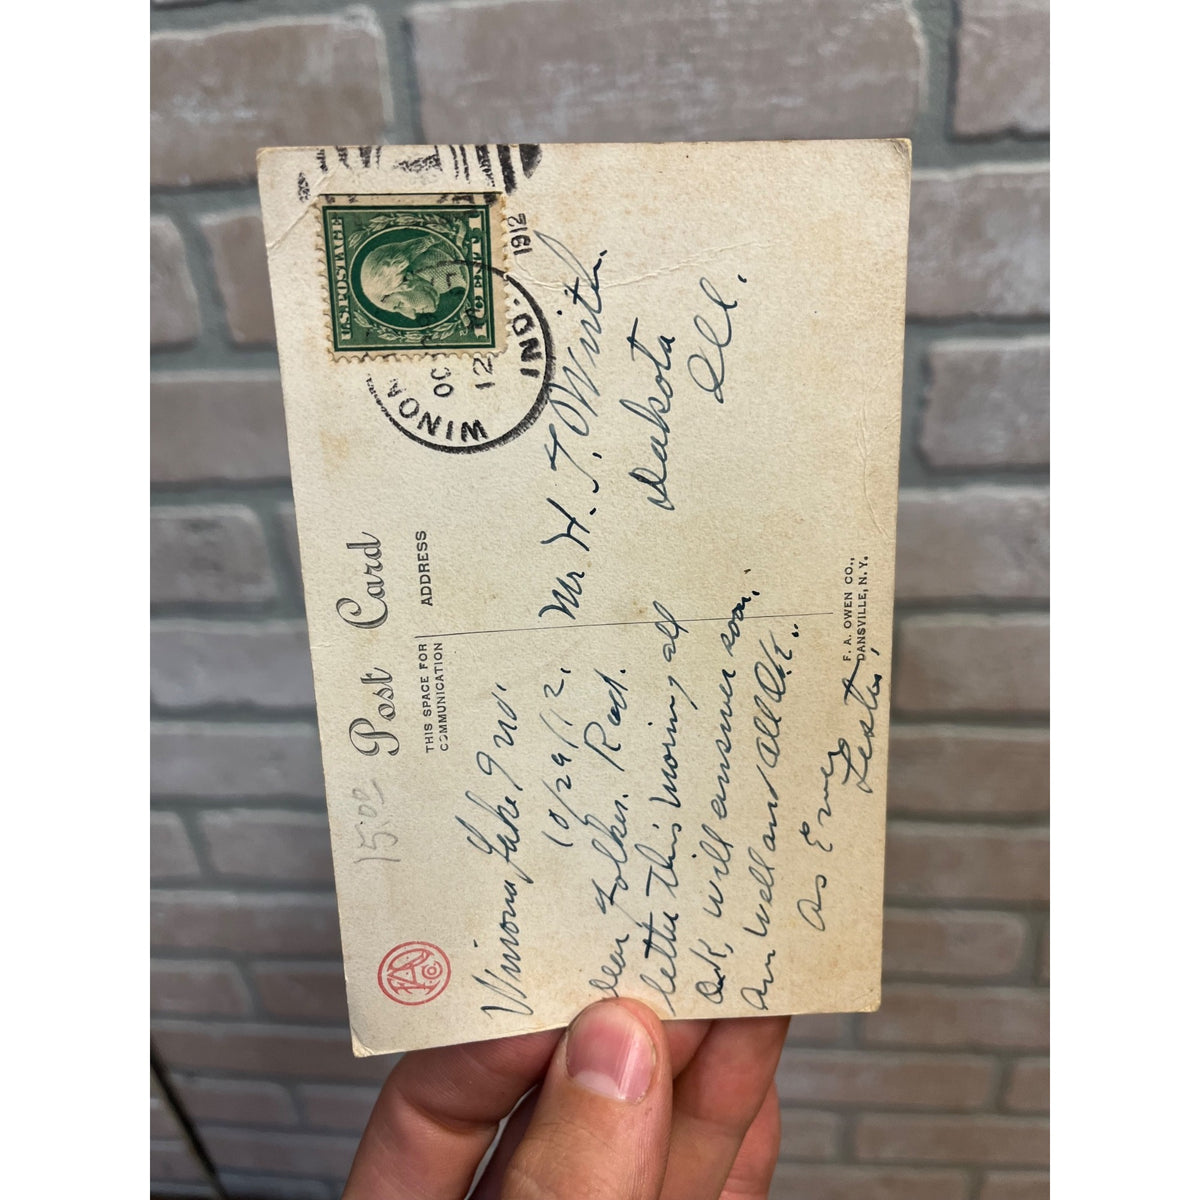 15.00
Post Card
THIS SPACE FOR
COMMUNICATION
ADDRESS
U.S. POSTAGE
1 CENT 1
WINONA
OC
12
IND.
1912
Winona Lake Ind.
10/29/12.
Dear Folks. Recd.
letter this morning all
O.K, will answer soon.
Am well and all O.K..
As Ever
Lester,
Mr. H. T.
Dakota
Ill.
F. A. OWEN CO.,
DANSVILLE, N.Y.